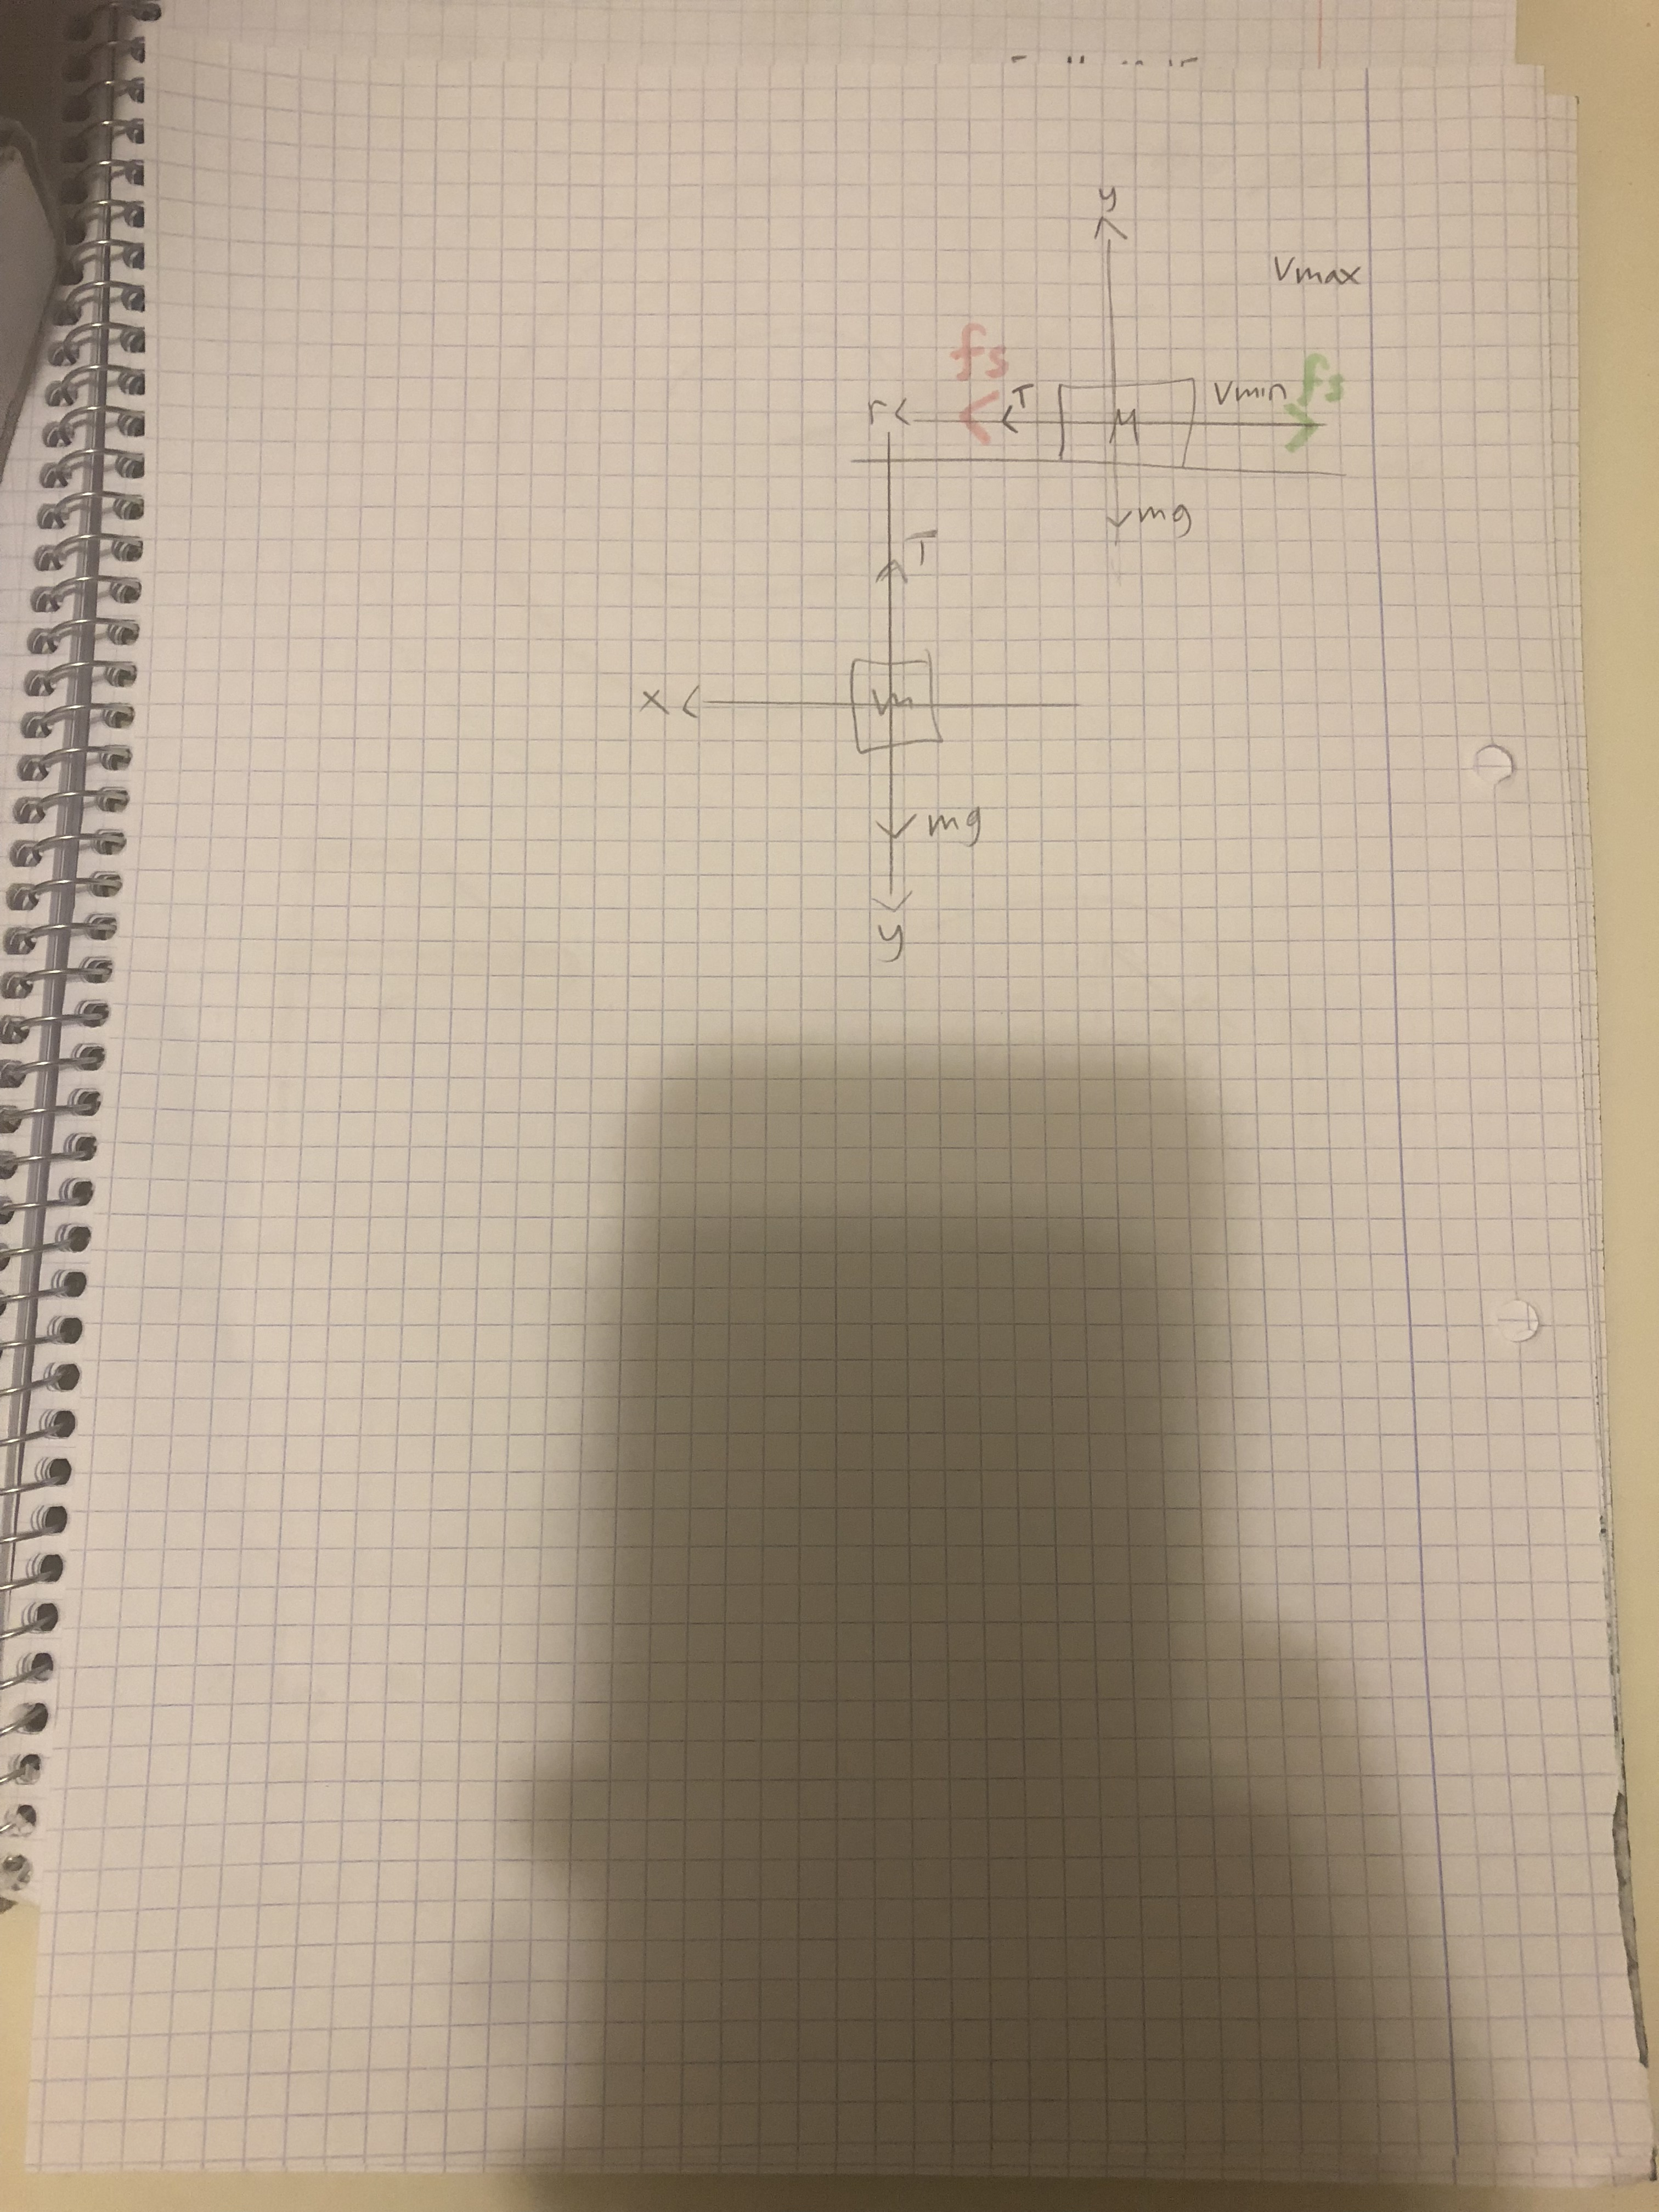 y
Vmax
fs
fs
r T M Vmin
mg
T
x m
mg
y